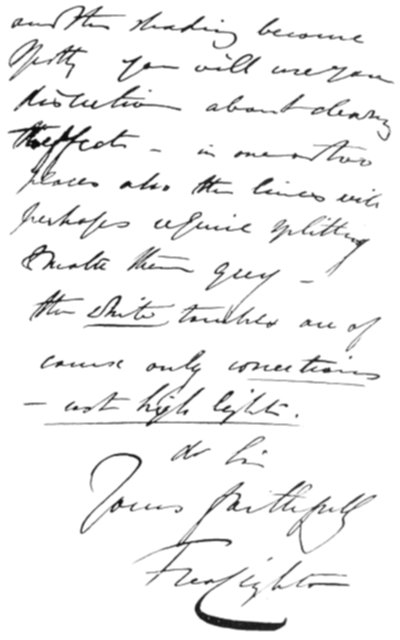 and the shading become
spotty you will use your
discretion about clearing
the effects – in one or two
places also the lines will
perhaps require splitting
& make them grey –
the white touches are of
course only corrections
– not high lights.
dr Sir
Yours faithfully
Fred Leighton